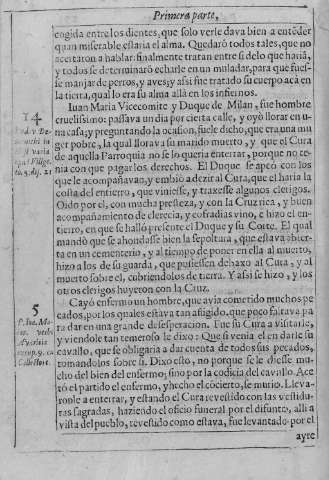 Primera parte,
cogida entre los dientes, que solo verle dava bien a entéder
quan miserable estaria el alma. Quedaró todos tales, que no
acertaron a hablar: finalmente tratan entre si de lo que hariã,
y todos se determinaró echarle en un muladar, para que fues-
se manjar de perros, y aves; y assi fue tratado su cuerpo acà en
la tierra, qual lo era su alma allà en los infiernos.
14
Iuan Maria Vicecomite y Duque de Milan, fue hombre
cruelissimo: passava un dia por cierta calle, y oyò llorar en u-
na casa; y preguntando la ocasion, fuele dicho, que era una mu
ger pobre, la qual llorava su marido muerto, y que el Cura
de aquella Parroquia no se lo queria enterrar, porque no te-
nia con que pagar los derechos. El Duque se apeò con los
que le acompañavan, y embiò a dezir al Cura, que el haria la
costa del entierro, que viniesse, y traxesse algunos clerigos.
Oido por el, con mucha presteza, y con la Cruz rica, y buen
acompañamiento de clerecia, y cofradias vino, e hizo el en-
tierro, en que se hallò presente el Duque y su Corte. El qual
mandò que se ahondasse bien la sepoltura, que estava abier-
ta en un cementerio, y al tiempo de poner en ella al muerto,
hizo a los de su guarda, que pusiessen debaxo al Cura, y al
muerto sobre el, cubriendolos de tierra. Y assi se hizo, y los
otros clerigos huyeron con la Cruz.
5
Cayò enfermo un hombre, que avia cometido muchos pe
cados, por los quales estava tan afligido, que poco faltava pa
ra dar en una grande desesperacion. Fue su Cura a visitarle,
y viendole tan temeroso le dixo: Que si venia el en darle su
cavallo, que se obligaria a dar cuenta de todos sus pecados,
tomandolos sobre si. Dixo esto, no porque se le diesse mu-
cho del bien del enfermo, sino por la codicia del cavallo. Ace
tò el partido el enfermo, y hecho el cócierto, se murio. Lleva-
ronle a enterrar, y estando el Cura revestido con las vestidu-
ras sagradas, haziendo el oficio funeral por el difunto, alli a
vista del pueblo, revestido como estava, fue levantado por el
ayre